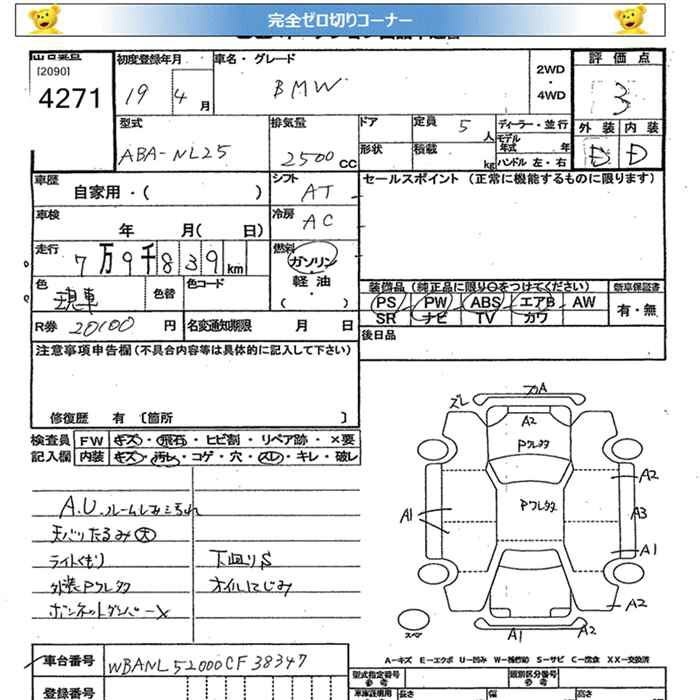 完全ゼロ切りコーナー
出品番号 初度登録年月 車名・グレード 評価点
[2090]
4271 19 4月 BMW 2WD・4WD 3
型式 排気量 ドア 定員 5人 ディーラー・並行 外装 内装
ABA-NL25 2500cc 形状 積載 kg モデル年式 年 D D
ハンドル 左・右
車歴 自家用・( ) シフト AT セールスポイント (正常に機能するものに限ります)
車検 年 月( 日) 冷房 AC
走行 7万9千839km 燃料 ガソリン・軽油・( )
色 現車 色替 色コード 装備品 (純正品に限り○をつけてください) 新車保証書
PS PW ABS エアB AW 有・無
SR ナビ TV カワ
R券 20100円 名変通知期限 月 日 後日品
注意事項申告欄 (不具合内容等は具体的に記入して下さい)
修復歴 有 〔箇所 〕
検査員 FW キズ・飛石・ヒビ割・リペア跡・×要
記入欄 内装 キズ・汚レ・コゲ・穴・スレ・キレ・破レ
A.U.ルームしみ汚れ
天バリたるみ大
ライトくもり 下廻りS
外装Pワレタタ オイルにじみ
ボンネットダンパーX
ズレ ワレA
A2
Pワレタタ
Pワレタタ
A2
A1 A3
A1
A2
スペア A1 A2
A-キズ E-エクボ U-凹み W-補修跡 S-サビ C-腐食 XX-交換済
車台番号 WBANL52000CF38347 型式指定番号 参考 類別区分番号 参考
登録番号 車庫証明用 参考 長さ 幅 高さ